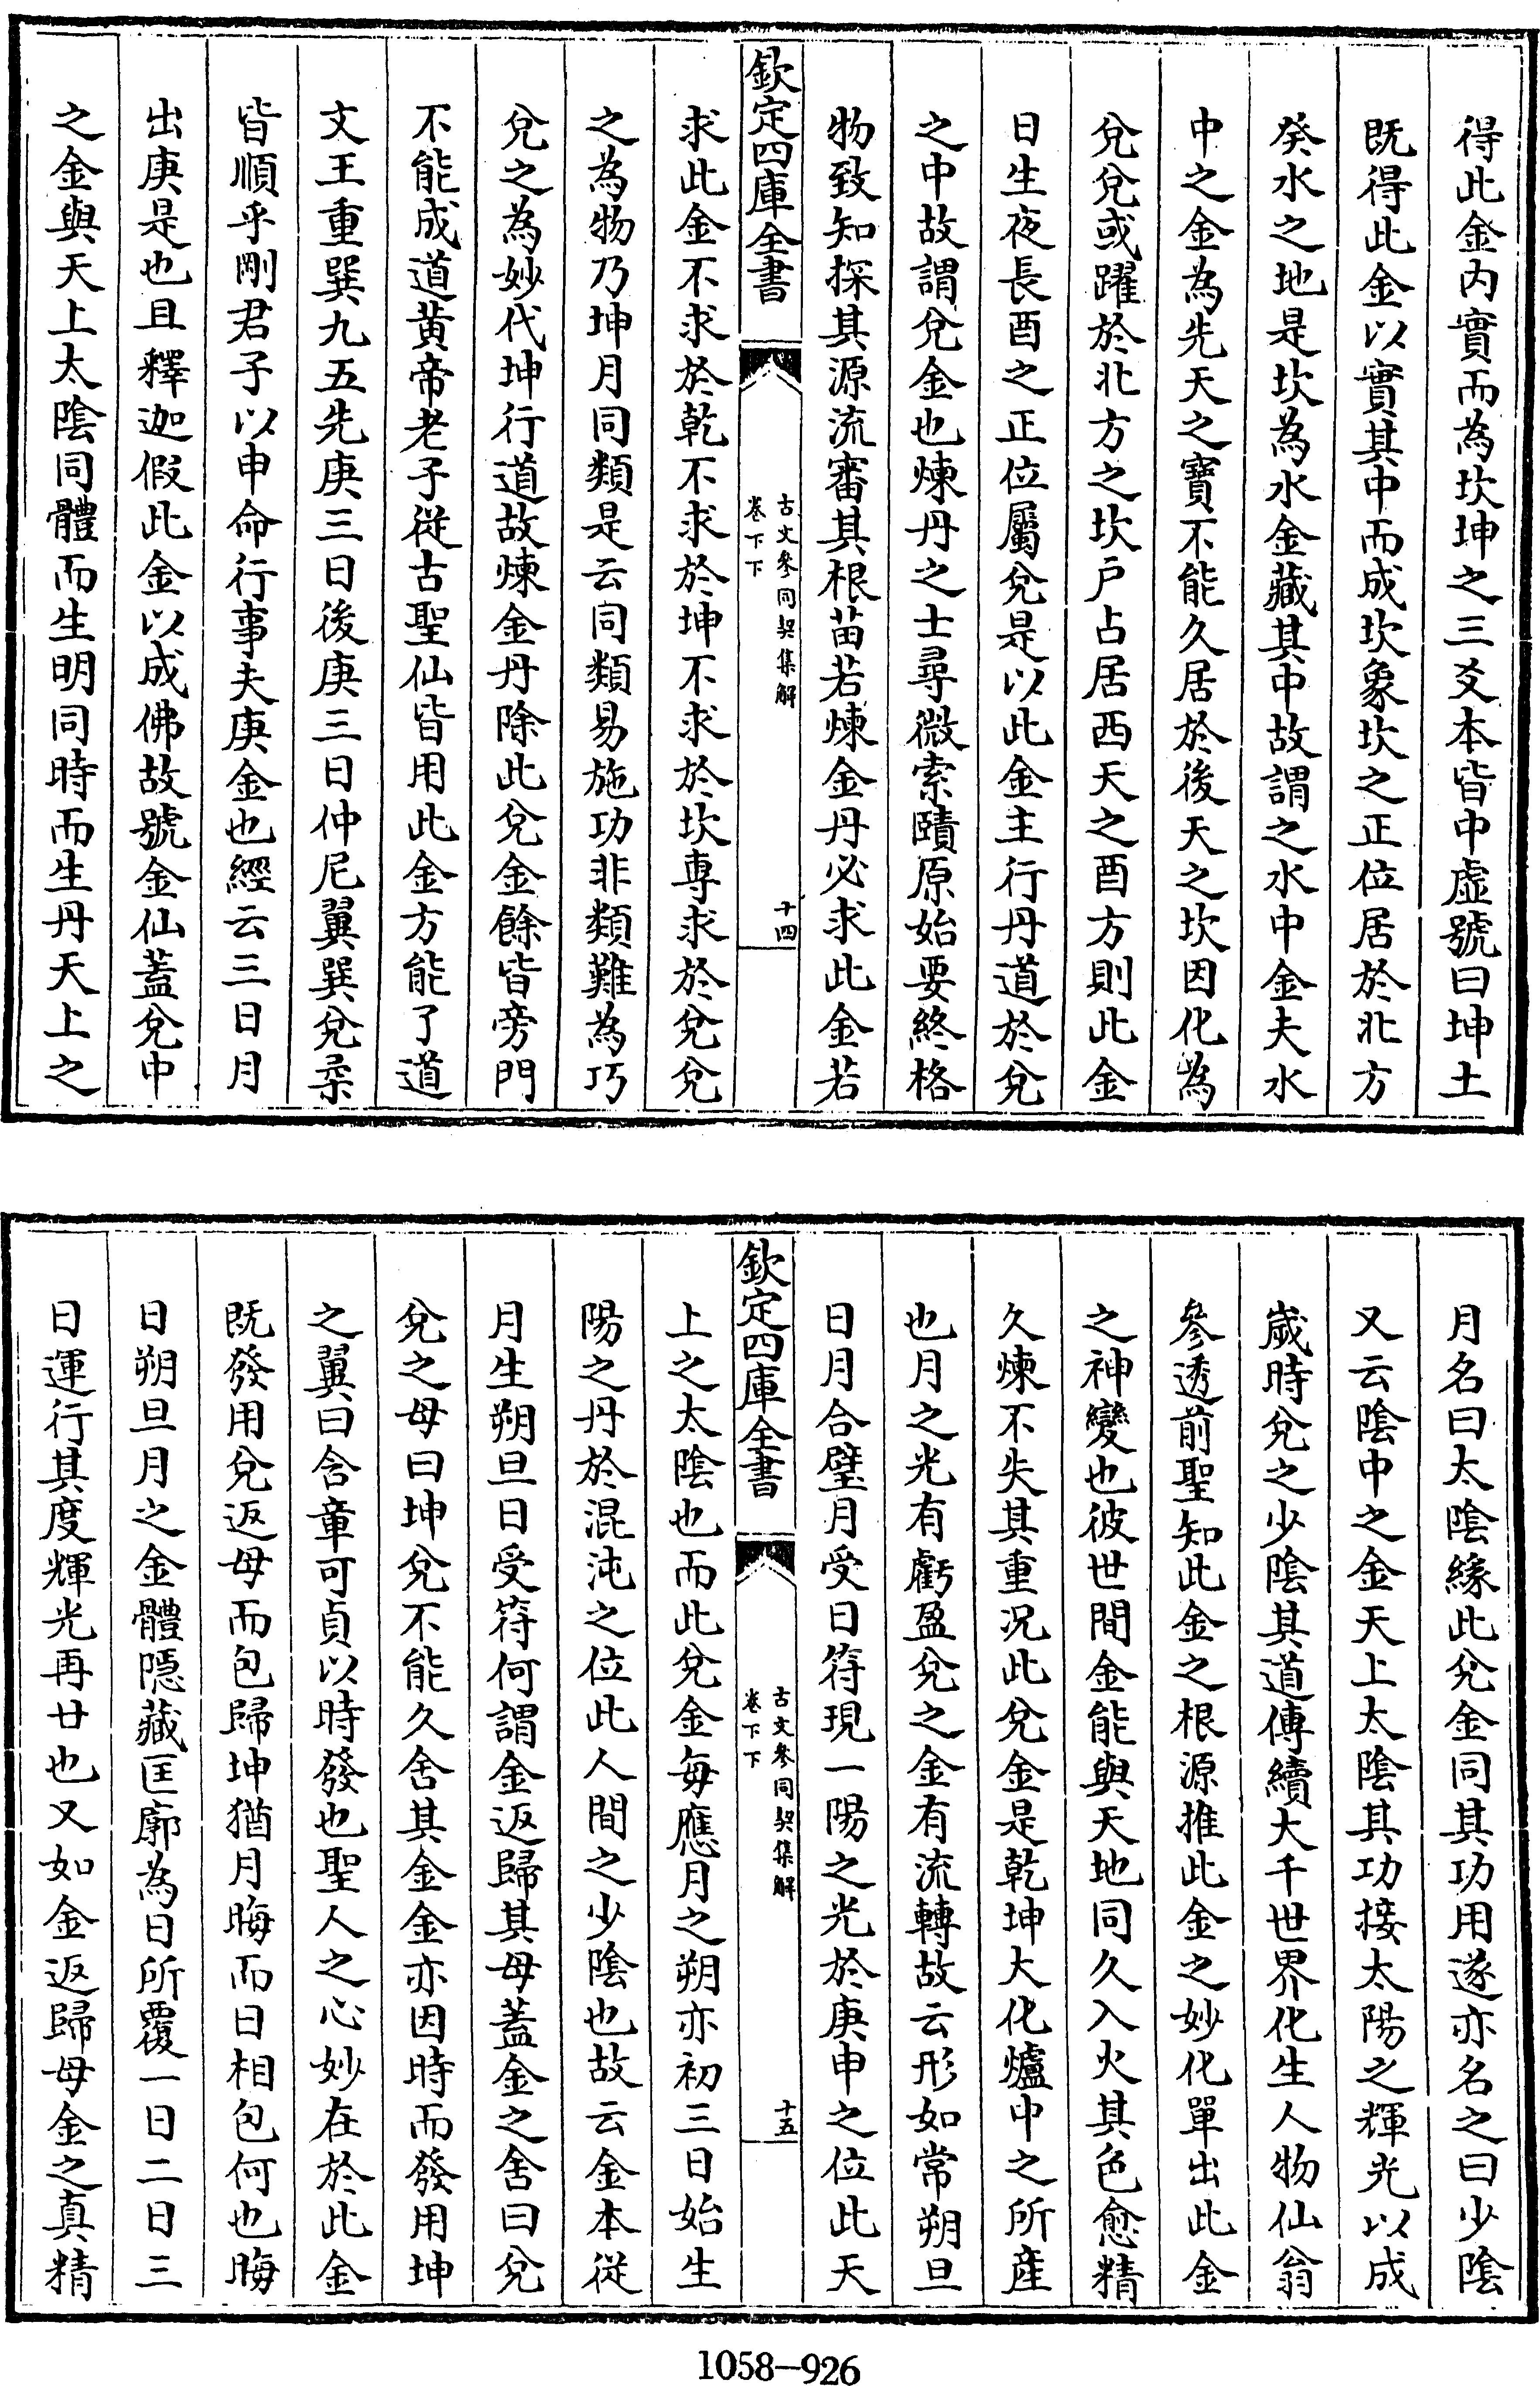 得此金内實而為坎坤之三爻本皆中虛號曰坤土
既得此金以實其中而成坎象坎之正位居於北方
癸水之地是坎為水金藏其中故謂之水中金夫水
中之金為先天之寶不能久居於後天之坎因化為
兌兌或躍於北方之坎戶占居西天之酉方則此金
日生夜長酉之正位屬兌是以此金主行丹道於兌
之中故謂兌金也煉丹之士尋微索賾原始要終格
物致知探其源流審其根苗若煉金丹必求此金若
欽定四庫全書
古文參同契集解
卷下下
十四
求此金不求於乾不求於坤不求於坎專求於兌兌
之為物乃坤月同類是云同類易施功非類難為巧
兌之為妙代坤行道故煉金丹除此兌金餘皆旁門
不能成道黃帝老子從古聖仙皆用此金方能了道
文王重巽九五先庚三日後庚三日仲尼翼巽兌柔
皆順乎剛君子以申命行事夫庚金也經云三日月
出庚是也且釋迦假此金以成佛故號金仙蓋兌中
之金與天上太陰同體而生明同時而生丹天上之
月名曰太陰緣此兌金同其功用遂亦名之曰少陰
又云陰中之金天上太陰其功接太陽之輝光以成
歲時兌之少陰其道傳續大千世界化生人物仙翁
參透前聖知此金之根源推此金之妙化單出此金
之神變也彼世間金能與天地同久入火其色愈精
久煉不失其重況此兌金是乾坤大化爐中之所產
也月之光有虧盈兌之金有流轉故云形如常朔旦
日月合璧月受日符現一陽之光於庚申之位此天
欽定四庫全書
古文參同契集解
卷下下
十五
上之太陰也而此兌金每應月之朔亦初三日始生
陽之丹於混沌之位此人間之少陰也故云金本從
月生朔旦日受符何謂金返歸其母蓋金之舍曰兌
兌之母曰坤兌不能久舍其金金亦因時而發用坤
之翼曰含章可貞以時發也聖人之心妙在於此金
既發用兌返母而包歸坤猶月晦而日相包何也晦
日朔旦月之金體隱藏匡廓為日所覆一日二日三
日運行其度輝光再廿也又如金返歸母金之真精
1058-926